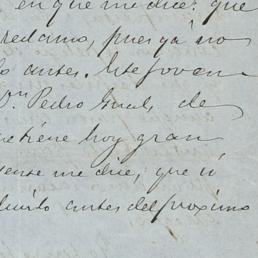 en que me dice: que
redamo, pues ya no
lo antes. Este Joven
Dn. Pedro Gual, de
tiene hoy gran
me dice, que si
antes del proximo